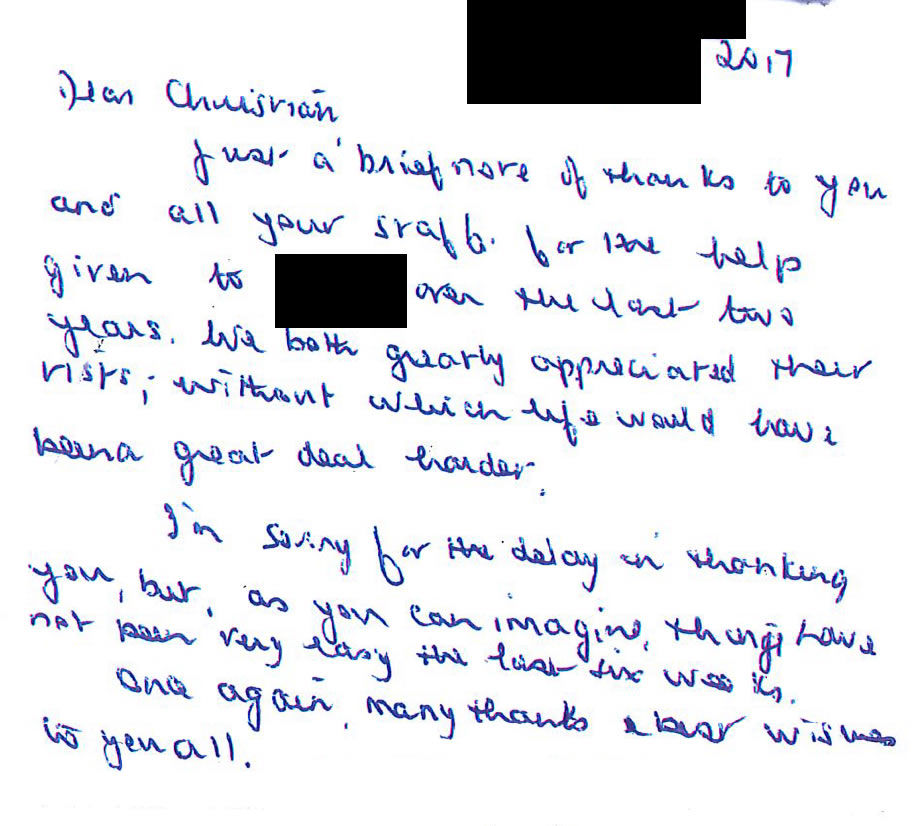 2017
Dear Christian
Just a brief note of thanks to you
and all your staff. for the help
given to over the last two
years. We both greatly appreciated their
visits; without which life would have
been a great deal harder.
I'm sorry for the delay in thanking
you, but, as you can imagine, things have
not been very easy the last six weeks.
Once again, many thanks & best wishes
to you all.